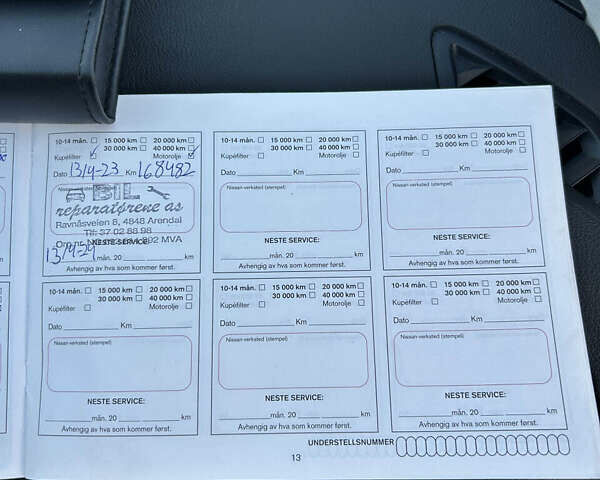 10-14 mån. 15 000 km 20 000 km
30 000 km 40 000 km
Kupéfilter Motorolje
Dato 13/4-23 Km 168482
BIL
reparatørene as
Ravnåsveien 8, 4848 Arendal
Tlf: 37 02 88 98
NESTE SERVICE: MVA
13/4-24 mån. 20 km
Avhengig av hva som kommer først.
10-14 mån. 15 000 km 20 000 km
30 000 km 40 000 km
Kupéfilter Motorolje
Dato Km
Nissan-verksted (stempel)
NESTE SERVICE:
mån. 20 km
Avhengig av hva som kommer først.
10-14 mån. 15 000 km 20 000 km
30 000 km 40 000 km
Kupéfilter Motorolje
Dato Km
Nissan-verksted (stempel)
NESTE SERVICE:
mån. 20 km
Avhengig av hva som kommer først.
10-14 mån. 15 000 km 20 000 km
30 000 km 40 000 km
Kupéfilter Motorolje
Dato Km
Nissan-verksted (stempel)
NESTE SERVICE:
mån. 20 km
Avhengig av hva som kommer først.
10-14 mån. 15 000 km 20 000 km
30 000 km 40 000 km
Kupéfilter Motorolje
Dato Km
Nissan-verksted (stempel)
NESTE SERVICE:
mån. 20 km
Avhengig av hva som kommer først.
10-14 mån. 15 000 km 20 000 km
30 000 km 40 000 km
Kupéfilter Motorolje
Dato Km
Nissan-verksted (stempel)
NESTE SERVICE:
mån. 20 km
Avhengig av hva som kommer først.
UNDERSTELLSNUMMER
13